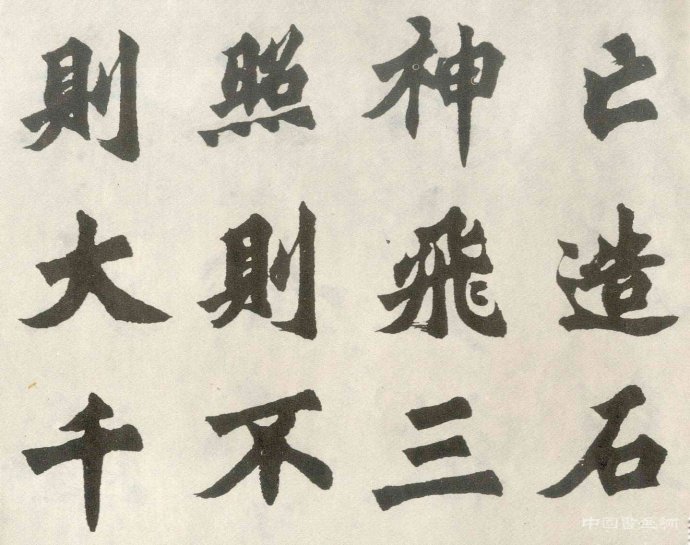 亡造石
神飛三
照則不
則大千
中国书画网